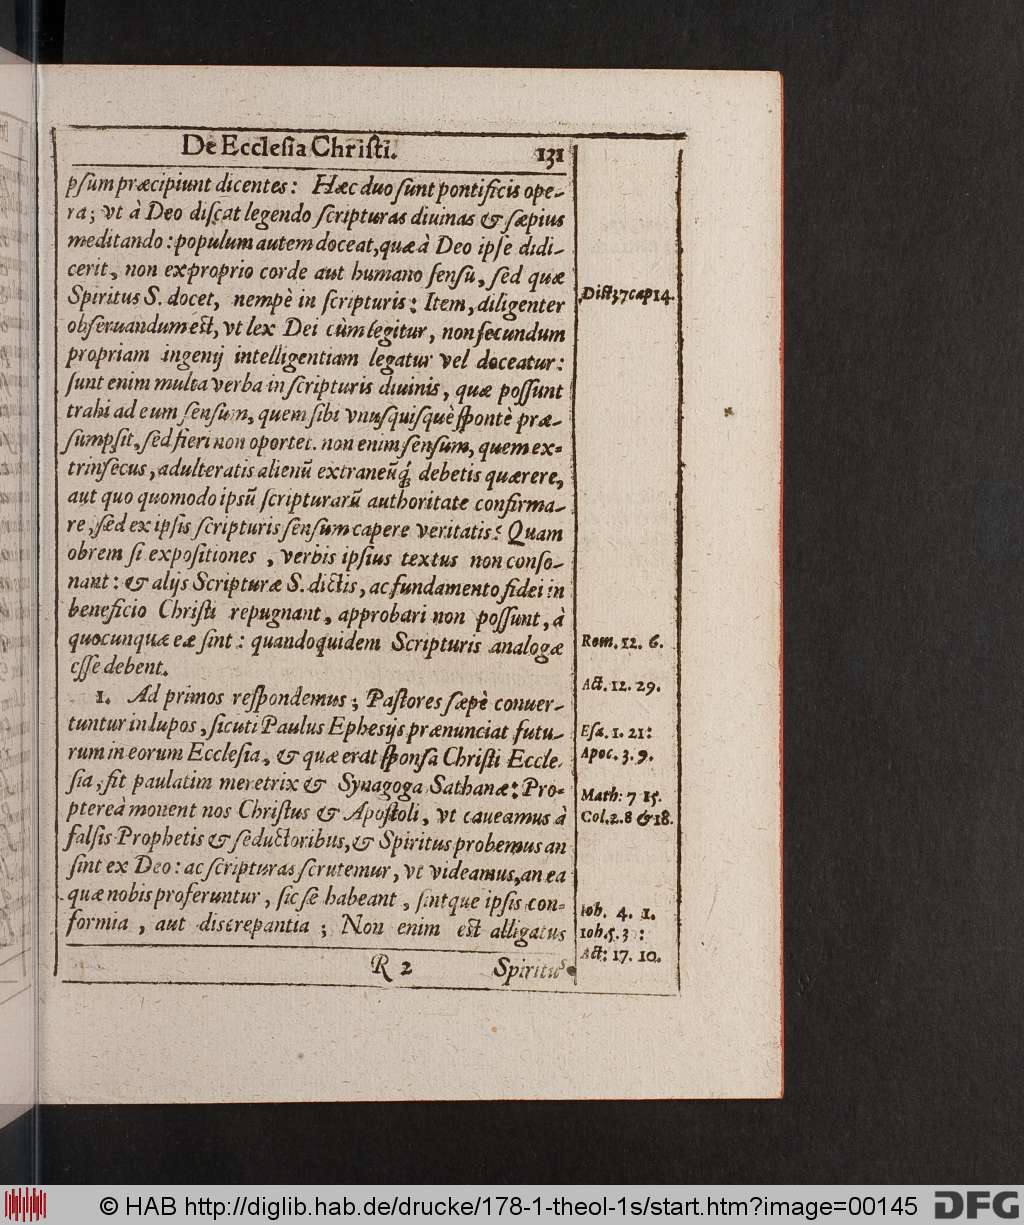 De Ecclesia Christi. 131
psum præcipiunt dicentes: Hæc duo sunt pontificis ope-
ra; vt à Deo discat legendo scripturas diuinas & sæpius
meditando: populum autem doceat, quæ à Deo ipse didi-
cerit, non ex proprio corde aut humano sensu, sed quæ
Spiritus S. docet, nempè in scripturis: Item, diligenter
obseruandum est, vt lex Dei cùm legitur, non secundum
propriam ingenij intelligentiam legatur vel doceatur:
sunt enim multa verba in scripturis diuinis, quæ possunt
trahi ad eum sensum, quem sibi vnusquisquè spontè præ-
sumpsit, sed fieri non oportet. non enim sensum, quem ex-
trinsecus, adulteratis alienū extraneūq́; debetis quærere,
aut quo quomodo ipsū scripturarū authoritate confirma-
re, sed ex ipsis scripturis sensum capere veritatis: Quam
obrem si expositiones, verbis ipsius textus non conso-
nant: & alijs Scripturæ S. dictis, ac fundamento fidei in
beneficio Christi repugnant, approbari non possunt, à
quocunquæ eæ sint: quandoquidem Scripturis analogæ
esse debent.
1. Ad primos respondemus; Pastores sæpè conuer-
tuntur in lupos, sicuti Paulus Ephesijs prænunciat futu-
rum in eorum Ecclesia, & quæ erat sponsa Christi Eccle-
sia, fit paulatim meretrix & Synagoga Sathanæ: Pro-
ptereà monent nos Christus & Apostoli, vt caueamus à
falsis Prophetis & seductoribus, & Spiritus probemus an
sint ex Deo: ac scripturas scrutemur, vt videamus, an ea
quæ nobis proferuntur, sic se habeant, sintque ipsis con-
formia, aut discrepantia; Non enim est alligatus
R 2 Spiritus
Dist 37 cap 14.
Rom. 12. 6.
Act. 12. 29.
Esa. 1. 21:
Apoc. 3. 9.
Math: 7 15.
Col. 2. 8 & 18.
Ioh. 4. 1.
Ioh. 5. 3 :
Act: 17. 10.
© HAB http://diglib.hab.de/drucke/178-1-theol-1s/start.htm?image=00145 DFG